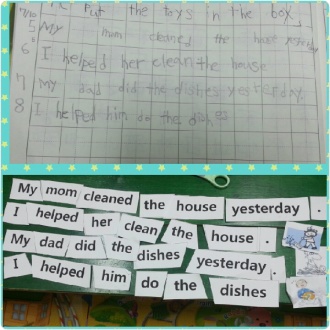 put the toys in the box
5 My mom cleaned the house yesterday
6 I helped her clean the house
7 My dad did the dishes yesterday.
8 I helped him do the dishes
My mom cleaned the house yesterday .
I helped her clean the house .
My dad did the dishes yesterday .
I helped him do the dishes